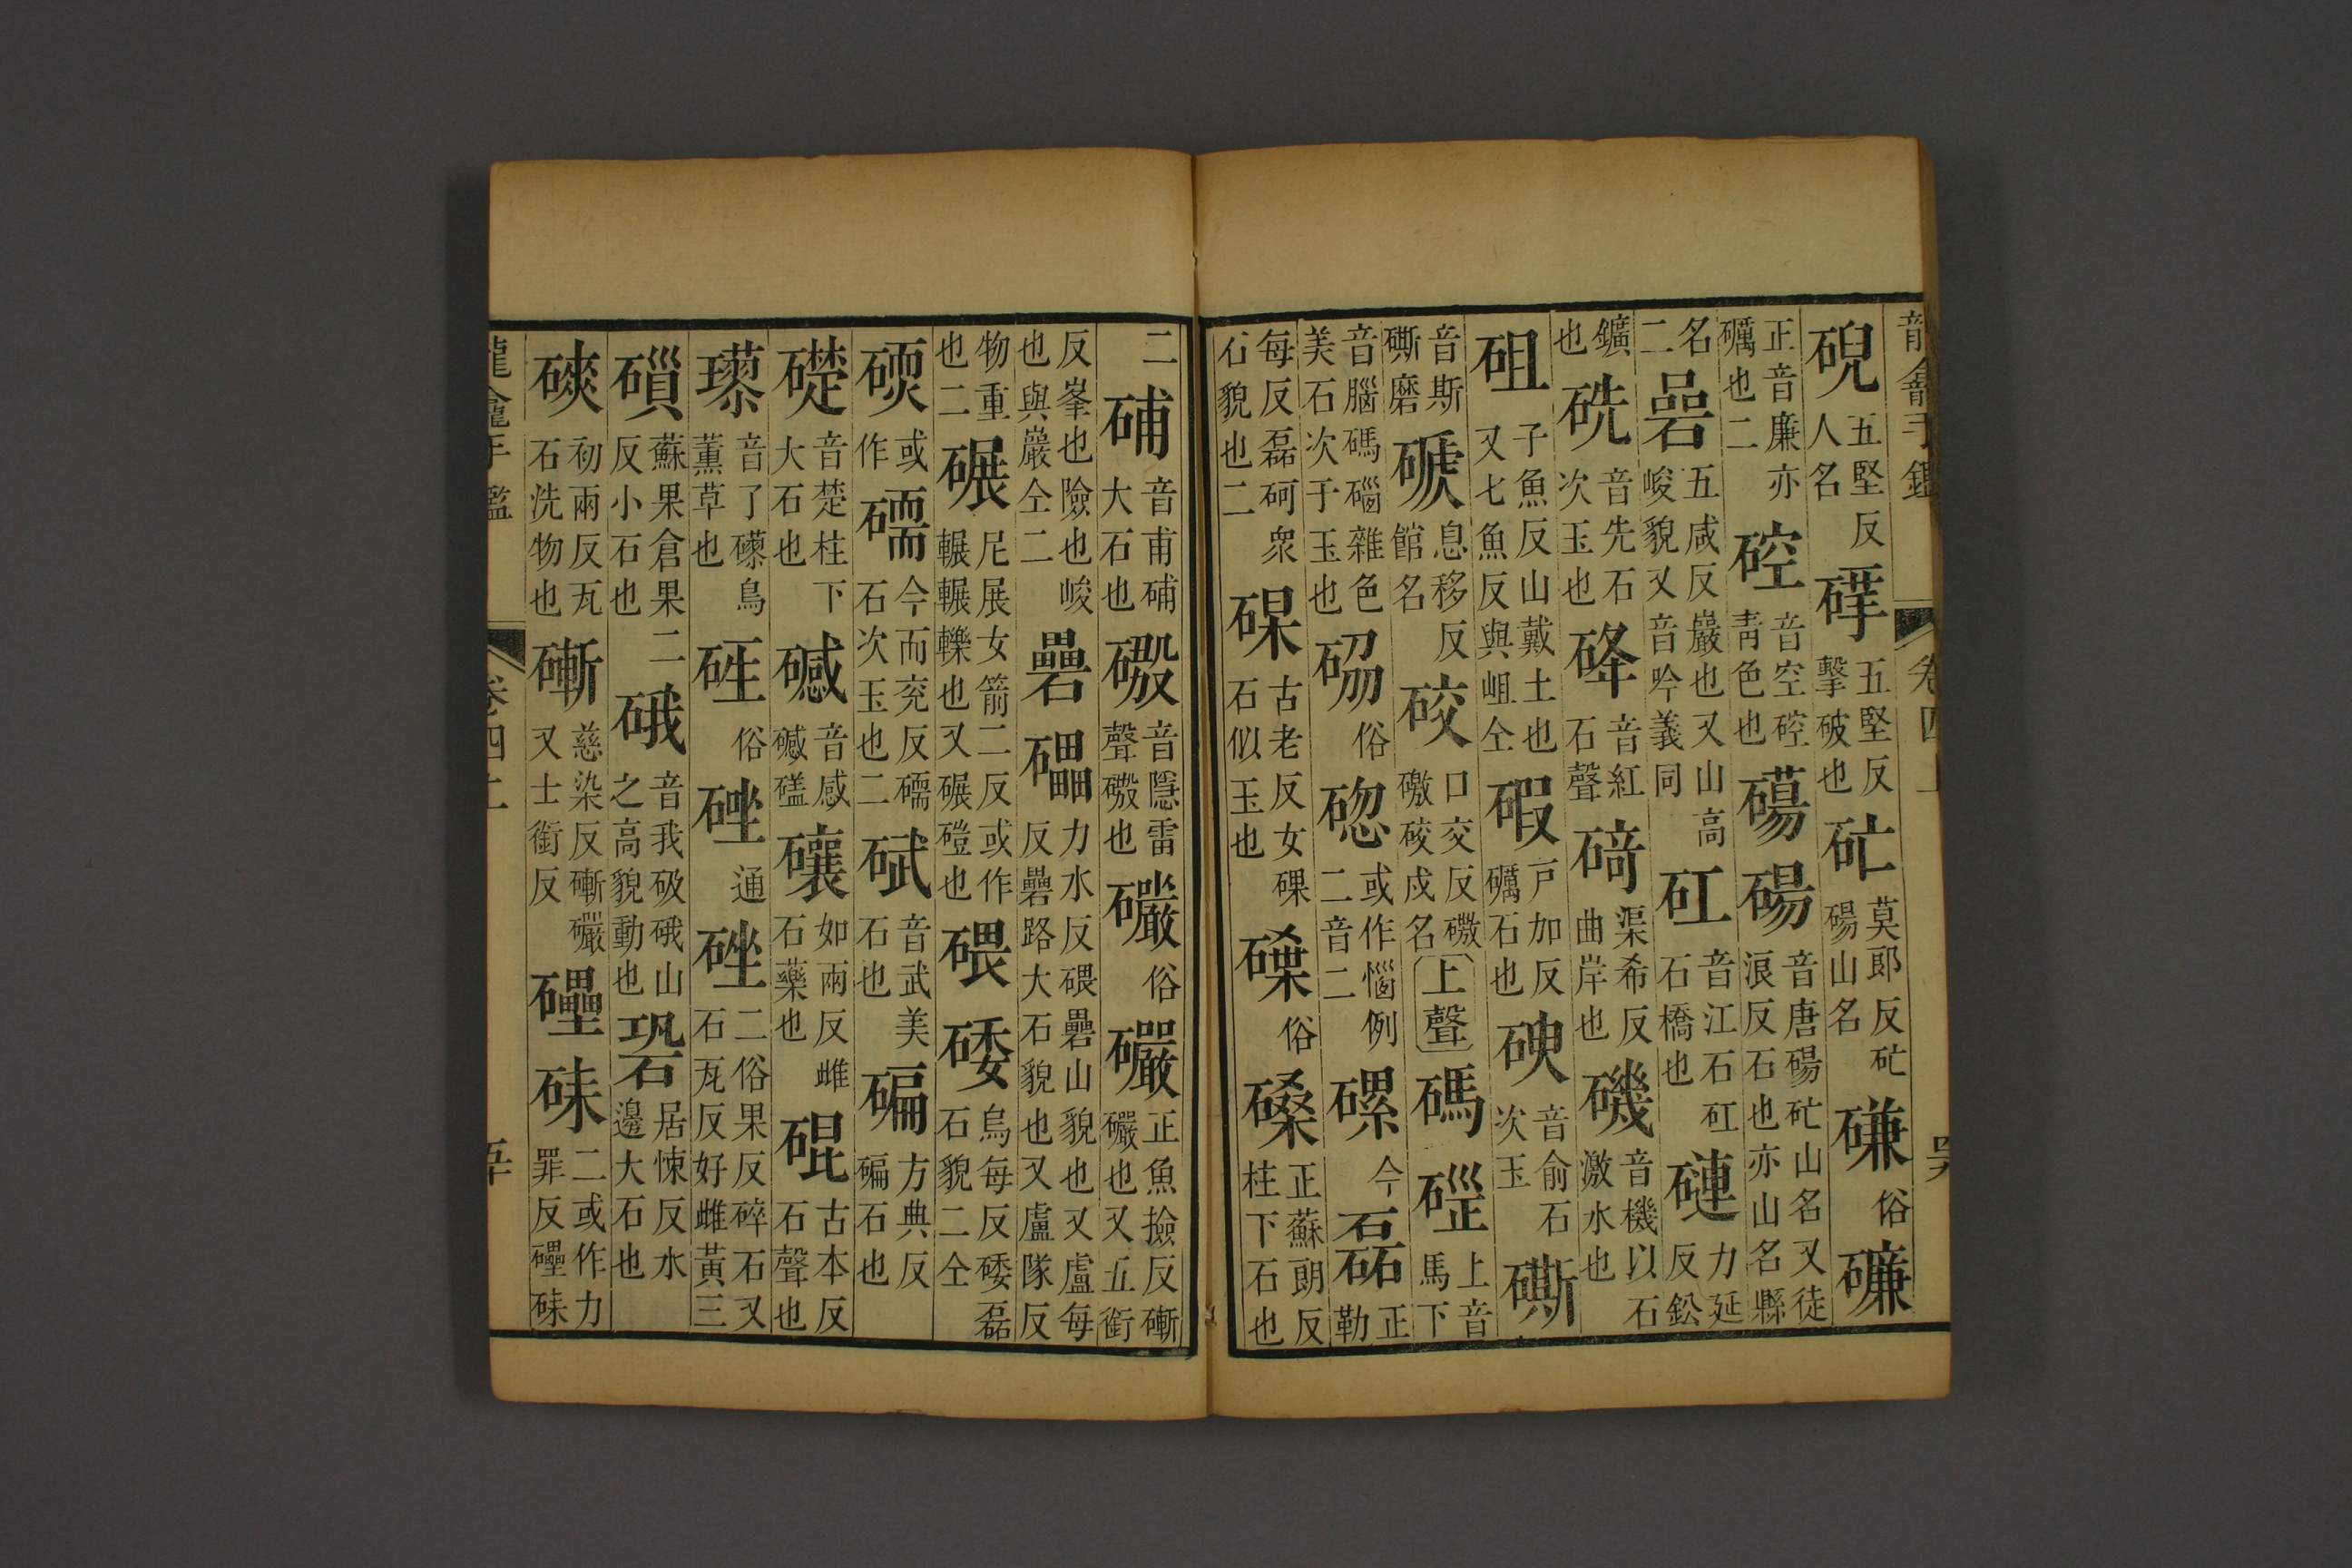 龍龕手鑑 卷四上 四
硯五堅反人名䃗五堅反擊破也䂃莫郎反䂃碭山名磏俗礦
正音廉亦礪也二硿音空硿青色也𥔥碭音唐碭䂃山名又徒浪反石也亦山名縣
名二嵒五咸反巖也又山高峻貌又音吟義同矼音江石矼石橋也䃛力延反鈆
鑛也硄音先石次玉也䂫音紅石聲碕渠希反曲岸也磯音機以石激水也
砠子魚反山戴土也又七魚反與岨仝碬戶加反礪石也碝音俞石次玉㒋
音斯磃磨磃息移反館名䂭口交反磽礉䂭戍名
上聲
碼䃏上音馬下
音腦碼碯雜色美石次于玉也𥑐俗碯或作惱例二音二磥今磊正勒
每反磊砢衆石貌也二䂤古老反女䂤石似玉也磉俗磉正蘇朗反柱下石也
二䃽音甫䃽大石也䃶音隱雷聲䃶也礹俗礹正魚撿反磛礹也又五銜
反峯也險也峻也與巖仝二礨䃬力水反碨礨山貌也又盧每反礨路大石貌也又盧隊反
物重也二碾尼展女箭二反或作輾輾轢也又碾磑也碨䂺烏每反䂺磊石貌二仝
碝或作礝今而兖反礝石次玉也二碔音武美石也碥方典反碥石也
礎音楚柱下大石也䃭音感䃭䃎礷如兩反雌石藥也硍古本反石聲也
𥖨音了𥖨鳥薰草也䂳俗䂳通硰二俗果反碎石又石瓦反好雌黃三
䃀蘇果倉果二反小石也硪音我砐硪山之高貌動也硓居悚反水邊大石也
磢初兩反瓦石洗物也磛慈染反磛礹又士銜反礧硃二或作力罪反礧硃
龍龕手鑑 卷四上 五